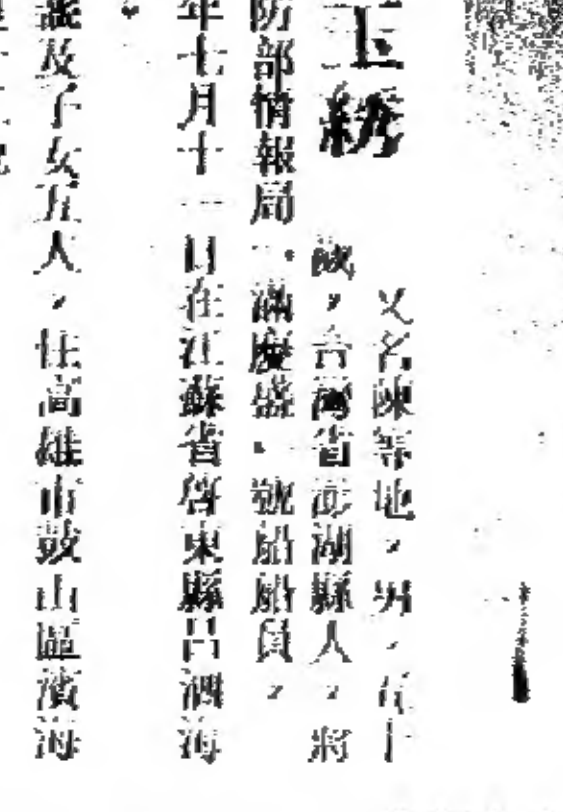 又名陳等地，男，
歲，台灣省澎湖縣人，將
防部情報局「滿慶盛」號船船員，
年七月十一日在江蘇省啓東縣呂泗海
及子女五人，住高雄市鼓山區濱海